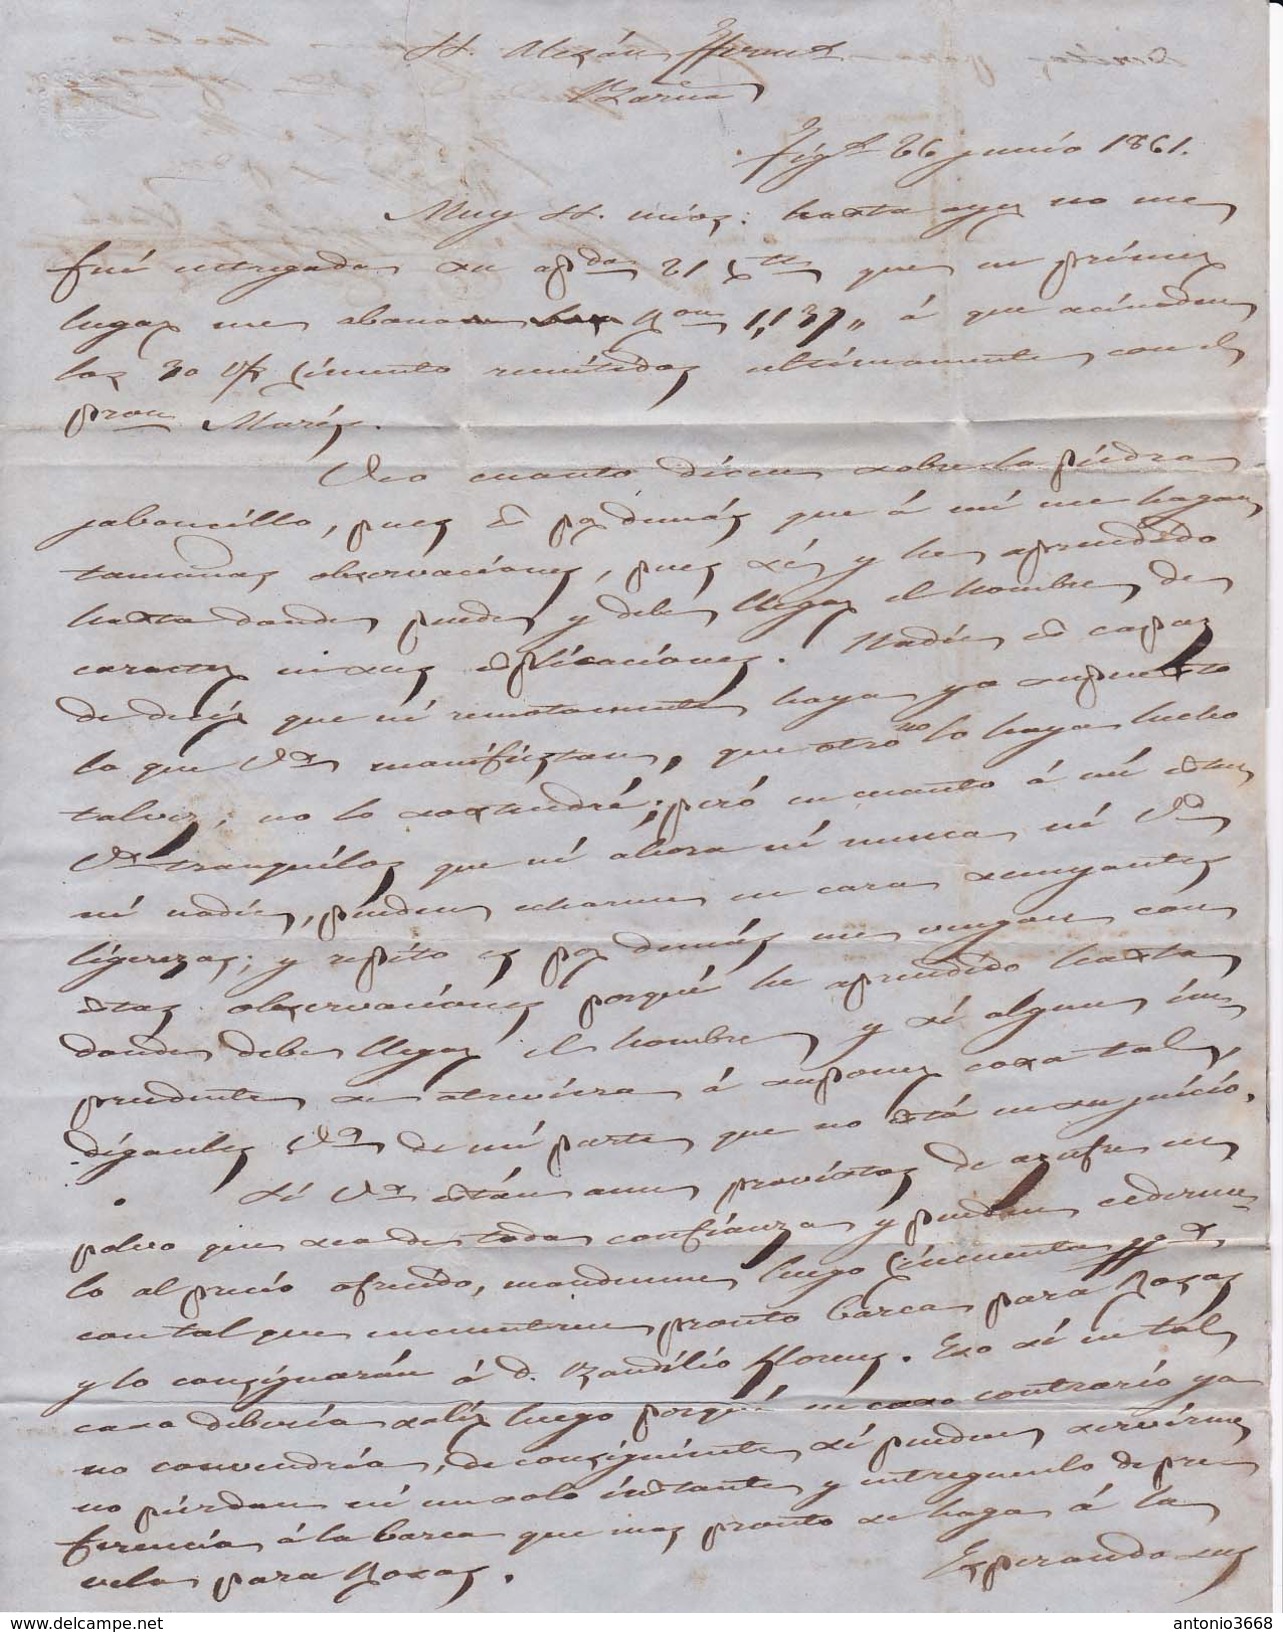 Figs 26 junio 1861.
Muy Ss. mios: hasta ayer no me
fué entregada su apda 21 que en primer
lugar me abonan Rvon 1,137,, á que ascienden
los 30 cimento remitidos ultimamente con el
pron Maris.
Veo cuanto dicen sobre la piedra
jaboncillo, pues es por demás que á mi me hagan
tamañas observaciones, pues sé y he aprendido
hasta donde puede y debe llegar el hombre de
caracter en sus esplicaciones. Nadie es capaz
de decir que ni remotamente haya yo supuesto
lo que Vds manifiestan, que otro no lo haya hecho
talvez, no lo sostendré; peró en cuanto á mi esten
Vds tranquilos que ni ahora ni nunca ni Vds
ni nadie, pueden echarme en cara semejantes
ligerezas; y repito es por demás me vengan con
estas observaciones porqué he aprendido hasta
donde debe llegar el hombre y si algun im
prudente se atreviera á suponer cosa tal,
diganles Vds de mi parte que no está en su juicio.
Si Vds están aun provistos de azufre en
polvo que sea de toda confianza y puedan cederme-
lo al precio ofrecido, mandenme luego cincuenta qq s
con tal que encuentren pronto barca para Rosas
y lo consignarán á D. Baudilio Llorens. Eso si en tal
caso deberia salir luego porqué en caso contrario ya
no convendria, de consiguiente si pueden servirme
no pierdan ni un solo instante y entreguenlo de pre
ferencia á la barca que mas pronto se haga á la
vela para Rosas.
Esperando sus
antonio3668